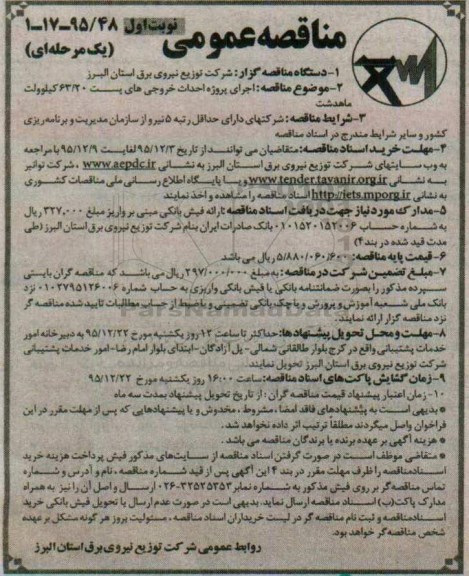 مناقصه عمومی
نوبت اول ۹۵/۴۸-۱۷-۱
(یک مرحله‌ای)
۱- دستگاه مناقصه گزار: شرکت توزیع نیروی برق استان البرز
۲- موضوع مناقصه: اجرای پروژه احداث خروجی های پست ۶۳/۲۰ کیلوولت
ماهدشت
۳- شرایط مناقصه: شرکتهای دارای حداقل رتبه ۵ نیرو از سازمان مدیریت و برنامه‌ریزی
کشور و سایر شرایط مندرج در اسناد مناقصه
۴- مهلت خرید اسناد مناقصه: متقاضیان می توانند از تاریخ ۹۵/۱۲/۳ لغایت ۹۵/۱۲/۹ با مراجعه
به وب سایتهای شرکت توزیع نیروی برق استان البرز به نشانی www.aepdc.ir ، شرکت توانیر
به نشانی www.tender.tavanir.org.ir و یا پایگاه اطلاع رسانی ملی مناقصات کشوری
به نشانی http://iets.mporg.ir اسناد مناقصه را مشاهده و اخذ نمایند
۵- مدارک مورد نیاز جهت دریافت اسناد مناقصه: ارائه فیش بانکی مبنی بر واریز مبلغ ۳۲۷,۰۰۰ ریال
به شماره حساب ۰۱۰۱۵۲۰۱۵۲۰۰۶ بانک صادرات ایران بنام شرکت توزیع نیروی برق استان البرز (طی
مدت قید شده در بند ۴)
۶- قیمت پایه مناقصه: ۵/۸۸۰/۰۶۰/۶۰۰ ریال می باشد
۷- مبلغ تضمین شرکت در مناقصه: به مبلغ ۲۹۷/۰۰۰/۰۰۰ ریال می باشد که مناقصه گران بایستی
سپرده مذکور را بصورت ضمانتنامه بانکی یا فیش بانکی واریزی به حساب شماره ۰۱۰۲۷۹۵۱۲۶۰۰۶ نزد
بانک ملی شعبه آموزش و پرورش و یا چک بانکی تضمینی و یا ضبط از حساب مطالبات تایید شده مناقصه گر
نزد مناقصه گزار ارائه نمایند.
۸- مهلت و محل تحویل پیشنهادها: حداکثر تا ساعت ۱۲ روز یکشنبه مورخ ۹۵/۱۲/۲۲ به دبیرخانه امور
خدمات پشتیبانی واقع در کرج بلوار طالقانی شمالی- پل آزادگان- ابتدای بلوار امام رضا- امور خدمات پشتیبانی
شرکت توزیع نیروی برق استان البرز تحویل نمایند.
۹- زمان گشایش پاکت‌های اسناد مناقصه: ساعت ۱۶:۰۰ روز یکشنبه مورخ ۹۵/۱۲/۲۲
۱۰- زمان اعتبار پیشنهاد قیمت مناقصه گران: از تاریخ تحویل پیشنهاد بمدت سه ماه
* بدیهی است به پیشنهادهای فاقد امضا، مشروط، مخدوش و یا پیشنهادهایی که پس از مهلت مقرر در این
فراخوان واصل میگردند مطلقا ترتیب اثر داده نخواهد شد.
* هزینه آگهی بر عهده برنده یا برندگان مناقصه می باشد.
* متقاضی موظف است در صورت گرفتن اسناد مناقصه از سایت‌های مذکور فیش پرداخت هزینه خرید
اسناد مناقصه را ظرف مهلت مقرر در بند ۴ این آگهی پس از قید شماره مناقصه، نام و آدرس و شماره
تماس مناقصه گر بر روی فیش مذکور به شماره نمابر ۳۲۵۲۵۳۵۳-۰۲۶ ارسال و اصل آن را نیز به همراه
مدارک پاکت (ب) اسناد مناقصه ارسال نماید. بدیهی است در صورت عدم ارسال یا تحویل فیش بانکی خرید
اسناد مناقصه و ثبت نام مناقصه گر در لیست خریداران اسناد مناقصه، مسئولیت بروز هر گونه مشکل بر عهده
شخص مناقصه گر خواهد بود.
روابط عمومی شرکت توزیع نیروی برق استان البرز